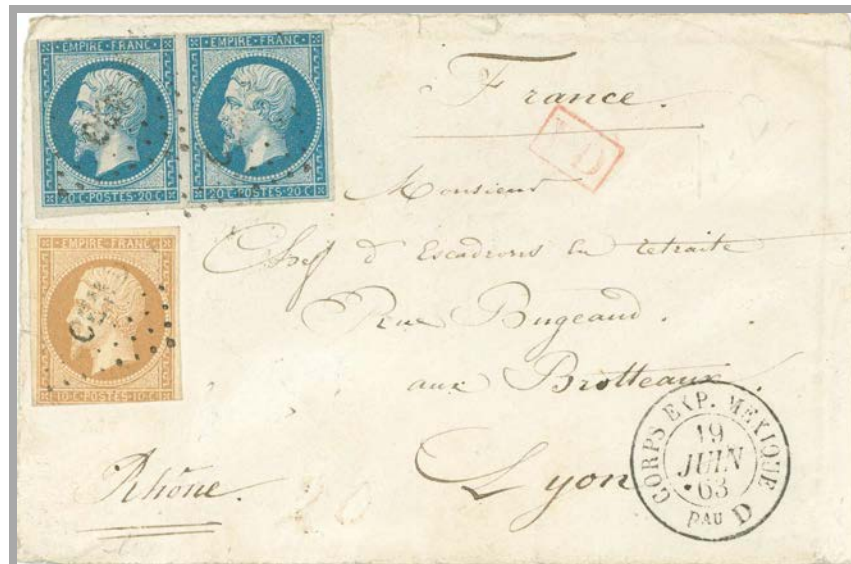 EMPIRE FRANC
EMPIRE FRANC
20 C POSTES 20 C
20 C POSTES 20 C
EMPIRE FRANC
10 C POSTES 10 C
France.
D
Monsieur
Chef d'Escadrons en retraite
Rue Bugeaud.
aux Brotteaux.
Lyon
Rhône.
CORPS EXP. MEXIQUE
19
JUIN
63
BAU D